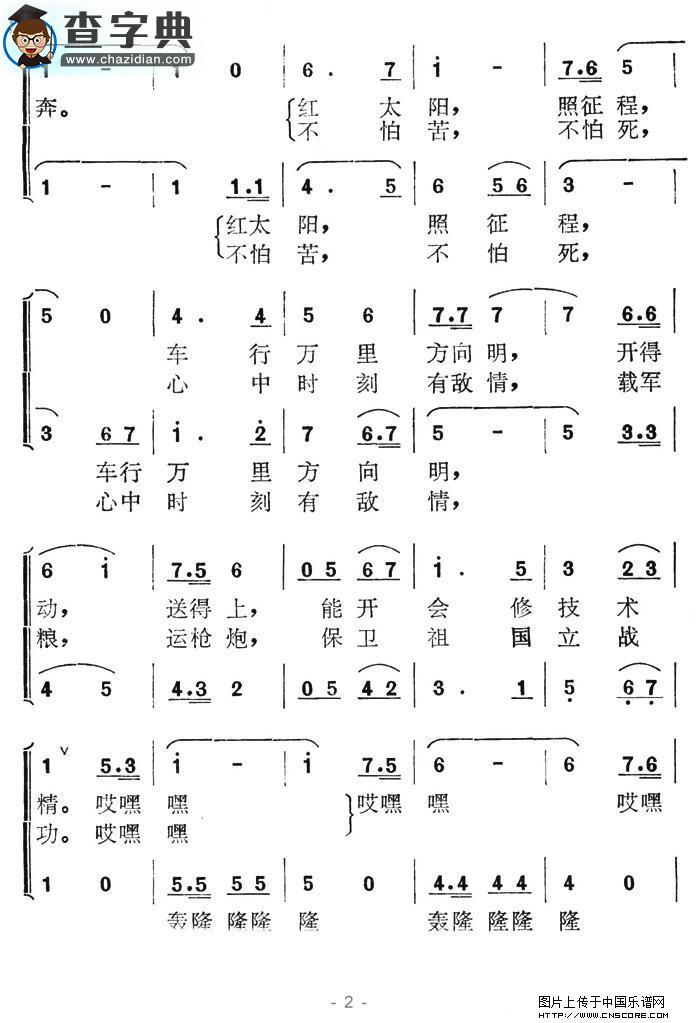 查字典
www.chazidian.com
1 - 1 0 6 . 7 i - 7.6 5
奔。 红 太 阳， 照征程，
不 怕 苦， 不怕死，
1 - 1 1.1 4 . 5 6 5 6 3 -
红太 阳， 照 征 程，
不怕 苦， 不 怕 死，
5 0 4 . 4 5 6 7.7 7 7 6.6
车 行 万 里 方向明， 开得
心 中 时 刻 有敌情， 载军
3 6 7 i . 2 7 6.7 5 - 5 3.3
车行 万 里 方 向 明，
心中 时 刻 有 敌 情，
6 i 7.5 6 0 5 6 7 i . 5 3 2 3
动， 送得上， 能开 会 修技术
粮， 运枪炮， 保卫 祖 国立战
4 5 4.3 2 0 5 4 2 3 . 1 5 6 7
1 5.3 i - i 7.5 6 - 6 7.6
精。 哎嘿 嘿 哎嘿 嘿 哎嘿
功。 哎嘿 嘿
1 0 5.5 5 5 5 0 4.4 4 4 4 0
轰隆 隆隆 隆 轰隆 隆隆 隆
- 2 -
图片上传于中国乐谱网
HTTP://WWW.CNSCORE.COM